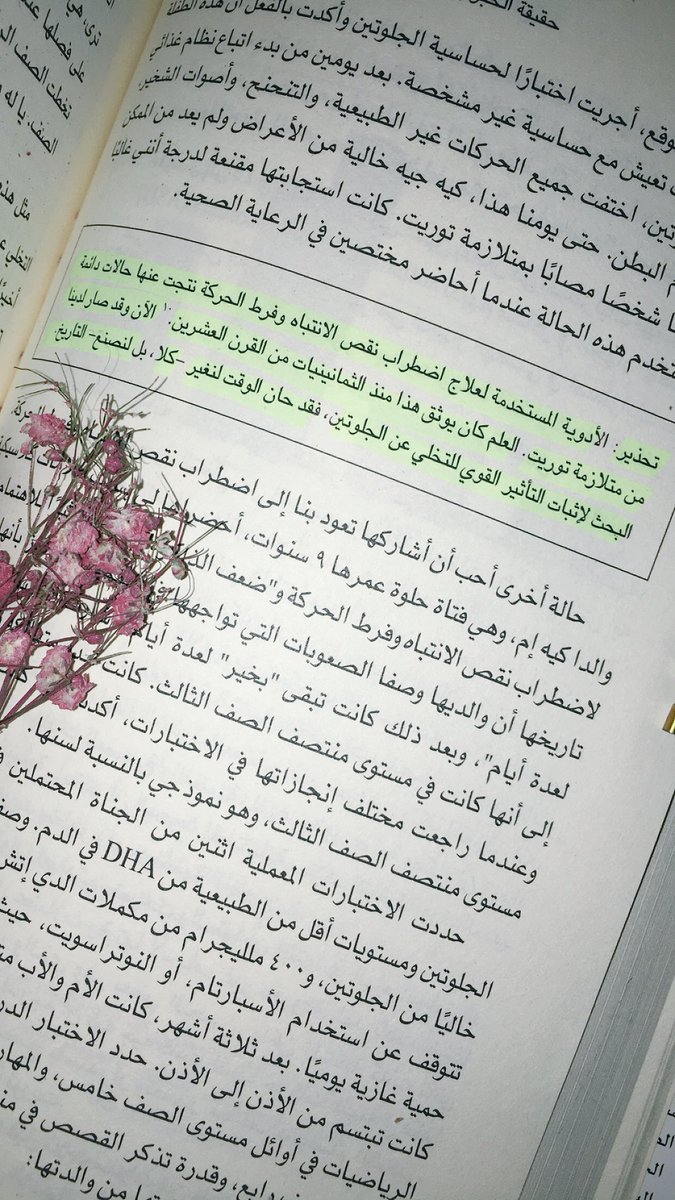 حقيقة الخبز
وقع، أجريت اختبارًا لحساسية الجلوتين وأكدت بالفعل أن هذه الطفلة
تعيش مع حساسية غير مشخصة. بعد يومين من بدء اتباع نظام غذائي
تين، اختفت جميع الحركات غير الطبيعية، والتنحنح، وأصوات الشخير،
م البطن. حتى يومنا هذا، كيه جيه خالية من الأعراض ولم يعد من الممكن
شخصًا مصابًا بمتلازمة توريت. كانت استجابتها مقنعة لدرجة أنني غالبًا
ستخدم هذه الحالة عندما أحاضر مختصين في الرعاية الصحية.
تحذير: الأدوية المستخدمة لعلاج اضطراب نقص الانتباه وفرط الحركة نتجت عنها حالات دائمة
من متلازمة توريت. العلم كان يوثق هذا منذ الثمانينيات من القرن العشرين.١٠ الآن وقد صار لدينا
البحث لإثبات التأثير القوي للتخلي عن الجلوتين، فقد حان الوقت لنغير -كلا، بل لنصنع- التاريخ.
حالة أخرى أحب أن أشاركها تعود بنا إلى اضطراب نقص الحركة
والدا كيه إم، وهي فتاة حلوة عمرها ٩ سنوات، أحضراها
لاضطراب نقص الانتباه وفرط الحركة و"ضعف
تاريخها أن والديها وصفا الصعوبات التي تواجهها
لعدة أيام"، وبعد ذلك كانت تبقى "بخير" لعدة أيام
إلى أنها كانت في مستوى منتصف الصف الثالث. كانت
وعندما راجعت مختلف إنجازاتها في الاختبارات،
مستوى منتصف الصف الثالث، وهو نموذجي بالنسبة لسنها.
حددت الاختبارات المعملية اثنين من الجناة المحتملين
الجلوتين ومستويات أقل من الطبيعية من DHA في الدم.
خاليًا من الجلوتين، و٤٠٠ ملليجرام من مكملات الدي إتش
تتوقف عن استخدام الأسبارتام، أو النوتراسويت، حيث
حمية غازية يوميًا. بعد ثلاثة أشهر، كانت الأم والأب
كانت تبتسم من الأذن إلى الأذن. حدد الاختبار
الرياضيات في أوائل مستوى الصف خامس،
رابع، وقدرة تذكر القصص في
من والدتها: